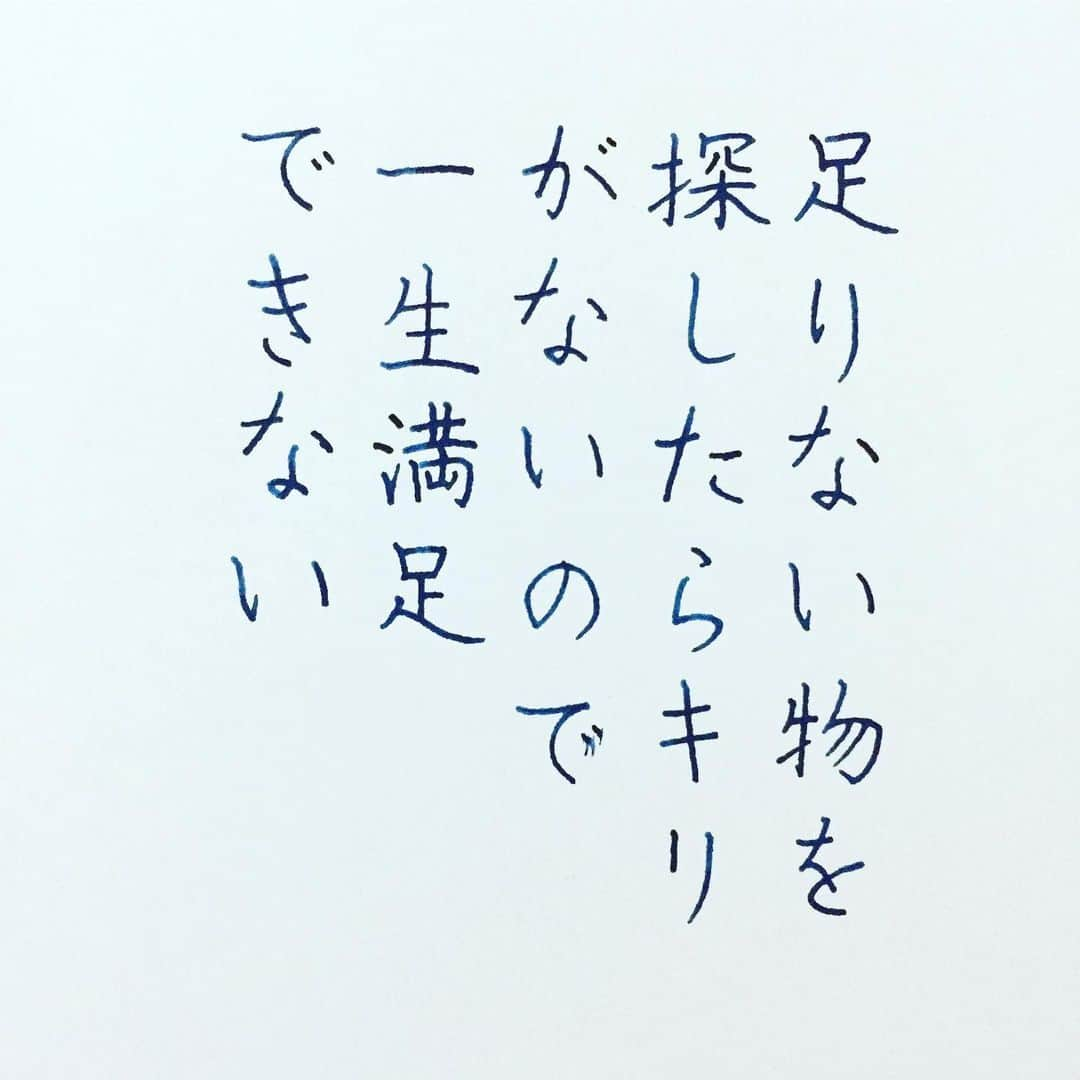 足りない物を
探したらキリ
がないので
一生満足
できない